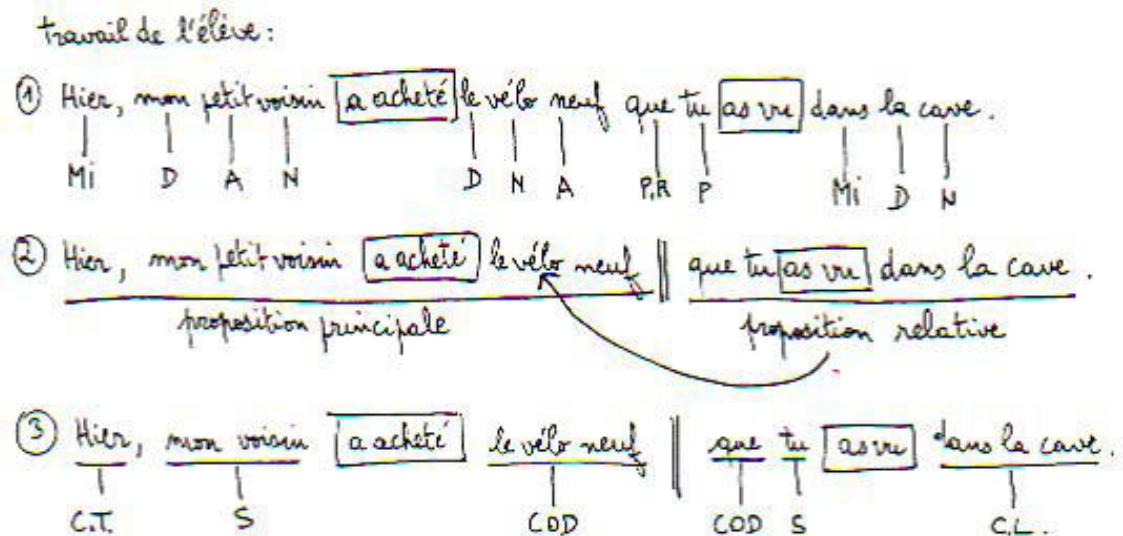 travail de l'élève :
① Hier, mon petit voisin a acheté le vélo neuf que tu as vu dans la cave.
Mi D A N D N A P.R P Mi D N
② Hier, mon petit voisin a acheté le vélo neuf || que tu as vu dans la cave.
proposition principale proposition relative
③ Hier, mon voisin a acheté le vélo neuf || que tu as vu dans la cave.
C.T. S COD COD S C.L.